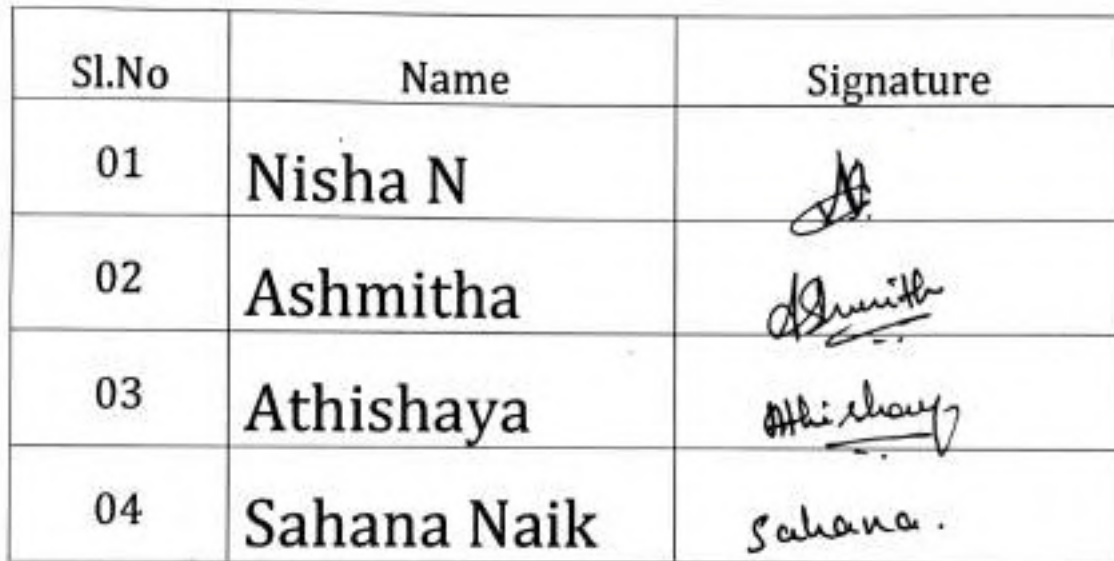 Sl.No Name Signature
01 Nisha N
02 Ashmitha Ashmith
03 Athishaya Athishay
04 Sahana Naik Sahana.